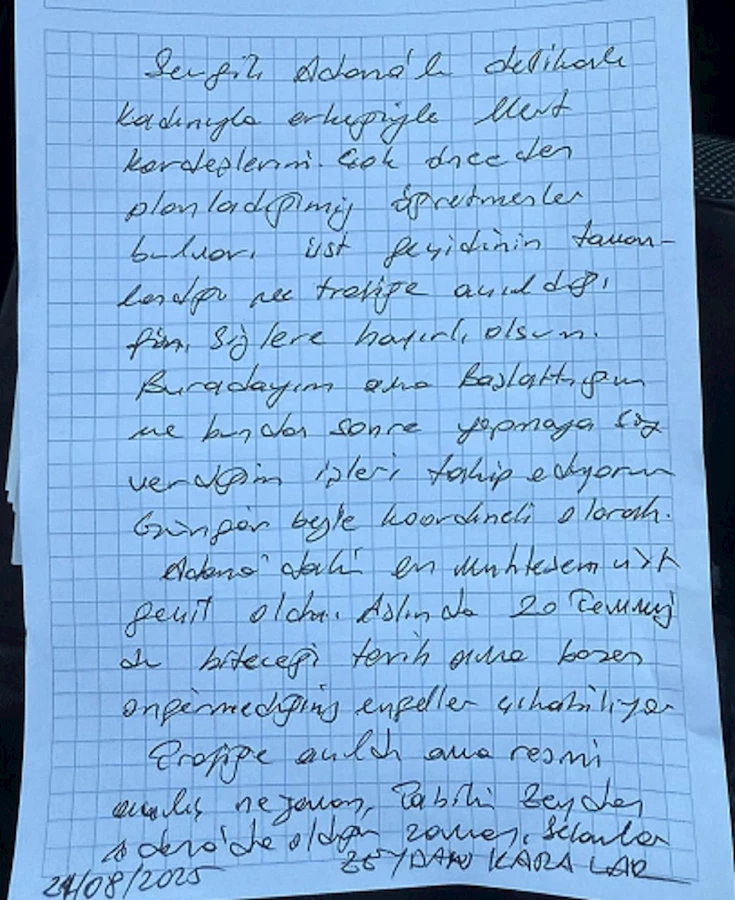 Sevgili Adana'lı delikanlı
kadınıyla erkeğiyle Mert
kardeşlerim. Çok önceden
planladığımız öğretmenler
bulvarı üst geçidinin tamam-
landığı ve trafiğe açıldığı
gün, sizlere hayırlı olsun.
Buradayım ama Başlattığım
ve bundan sonra yapmaya söz
verdiğim işleri takip ediyorum
Güngör beyle koordineli olarak.
Adana'daki en muhteşem üst
geçit oldu. Aslında 20 Temmuz
du biteceği tarih ama bazen
öngörmediğiniz engeller çıkabiliyor
Trafiğe açıldı ama resmi
açılış ne zaman, Tabiki Zeydan
Adana'da olduğu zaman, Selamlar
ZEYDAN KARALAR
24/08/2025